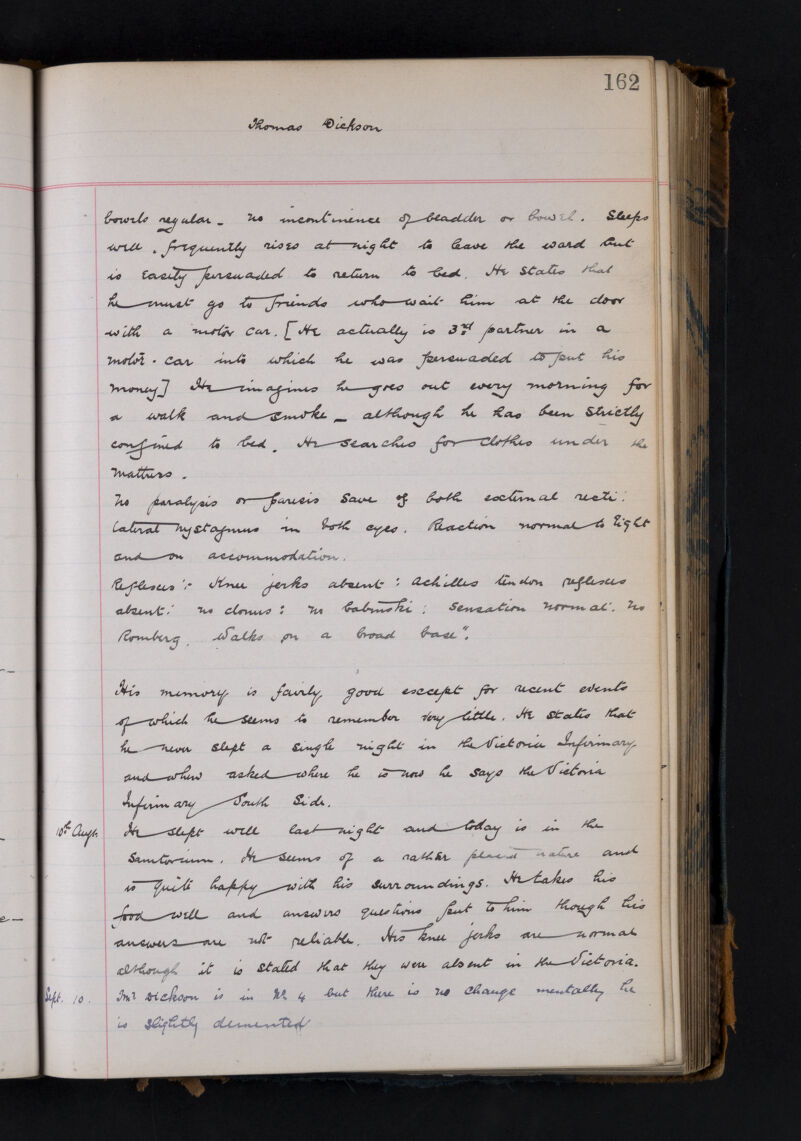 162
Thomas Dickson
bowels regular - no incontinence of bladder or bowel. Sleeps
well. frequently rises at night to leave the ward but
is easily persuaded to return to bed. He states that
he must go to friends who wait him at the door
with a motor car. [He actually is 3rd partner in a
motor-car into which he was persuaded to put his
money] He imagines he goes out every morning for
a walk and smoke - although he has been strictly
confined to bed. He searches for clothes under the
mattress.
No paralysis or paresis save of both external recti:
lateral nystagmus in both eyes. Reaction normal to light
and on accommodation.
Reflexes:- Knee jerks absent: Achilles tendon reflexes
absent: no clonus: no babinski: Sensation normal: No
Romberg. Walks on a broad base".
His memory is fairly good except for recent events
of which he seems to remember very little. He states that
he never slept a single night in the Victoria Infirmary
and when asked where he is now he says the Victoria
Infirmary South Side.
10th Augt. He slept well last night and today is in the
Sanitorium. He seems of a rather placid nature and
is quite happy with his surroundings. He takes his
food well and answers questions put to him though his
answers are not reliable. His knee jerks are normal
although it is stated that they were absent in the Victoria.
Sept. 10. Mr Dickson is in W. 4 but there is no change mentally he
is slightly demented